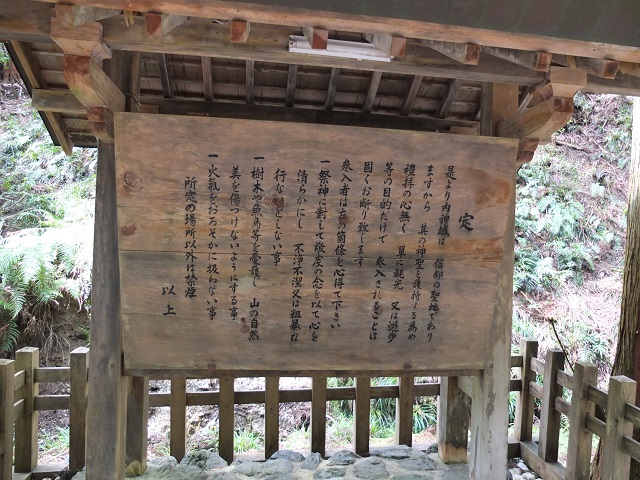 定
是より内神域は 信仰の聖地であり
ますから 其の神聖を護持する為め
禮拝の心無く 單に観光 又は遊歩
等の目的だけで 参入されることは
固くお断り致します
参入者は左の箇條を心得て下さい
一祭神に対して敬虔の念を以て心を
清らかにし 不浄不潔又は粗暴な
行ないをしない事
一樹木や魚鳥等を愛護し 山の自然
美を傷つけないようにする事
一火氣をおろそかに扱わない事
所定の場所以外は禁煙
以上